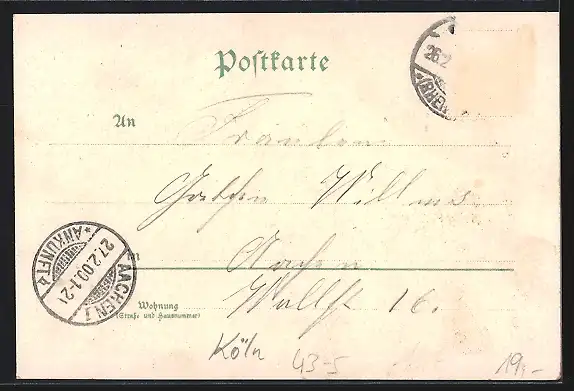 Postkarte
26.2
(RHEI
An
Fräulein
Gretchen Willms
in Aachen
Wohnung
(Straße und Hausnummer)
Wallstr 16.
ANKUNFT
27.2.00.1-2N
AACHEN 1
Köln
43-5
19,-